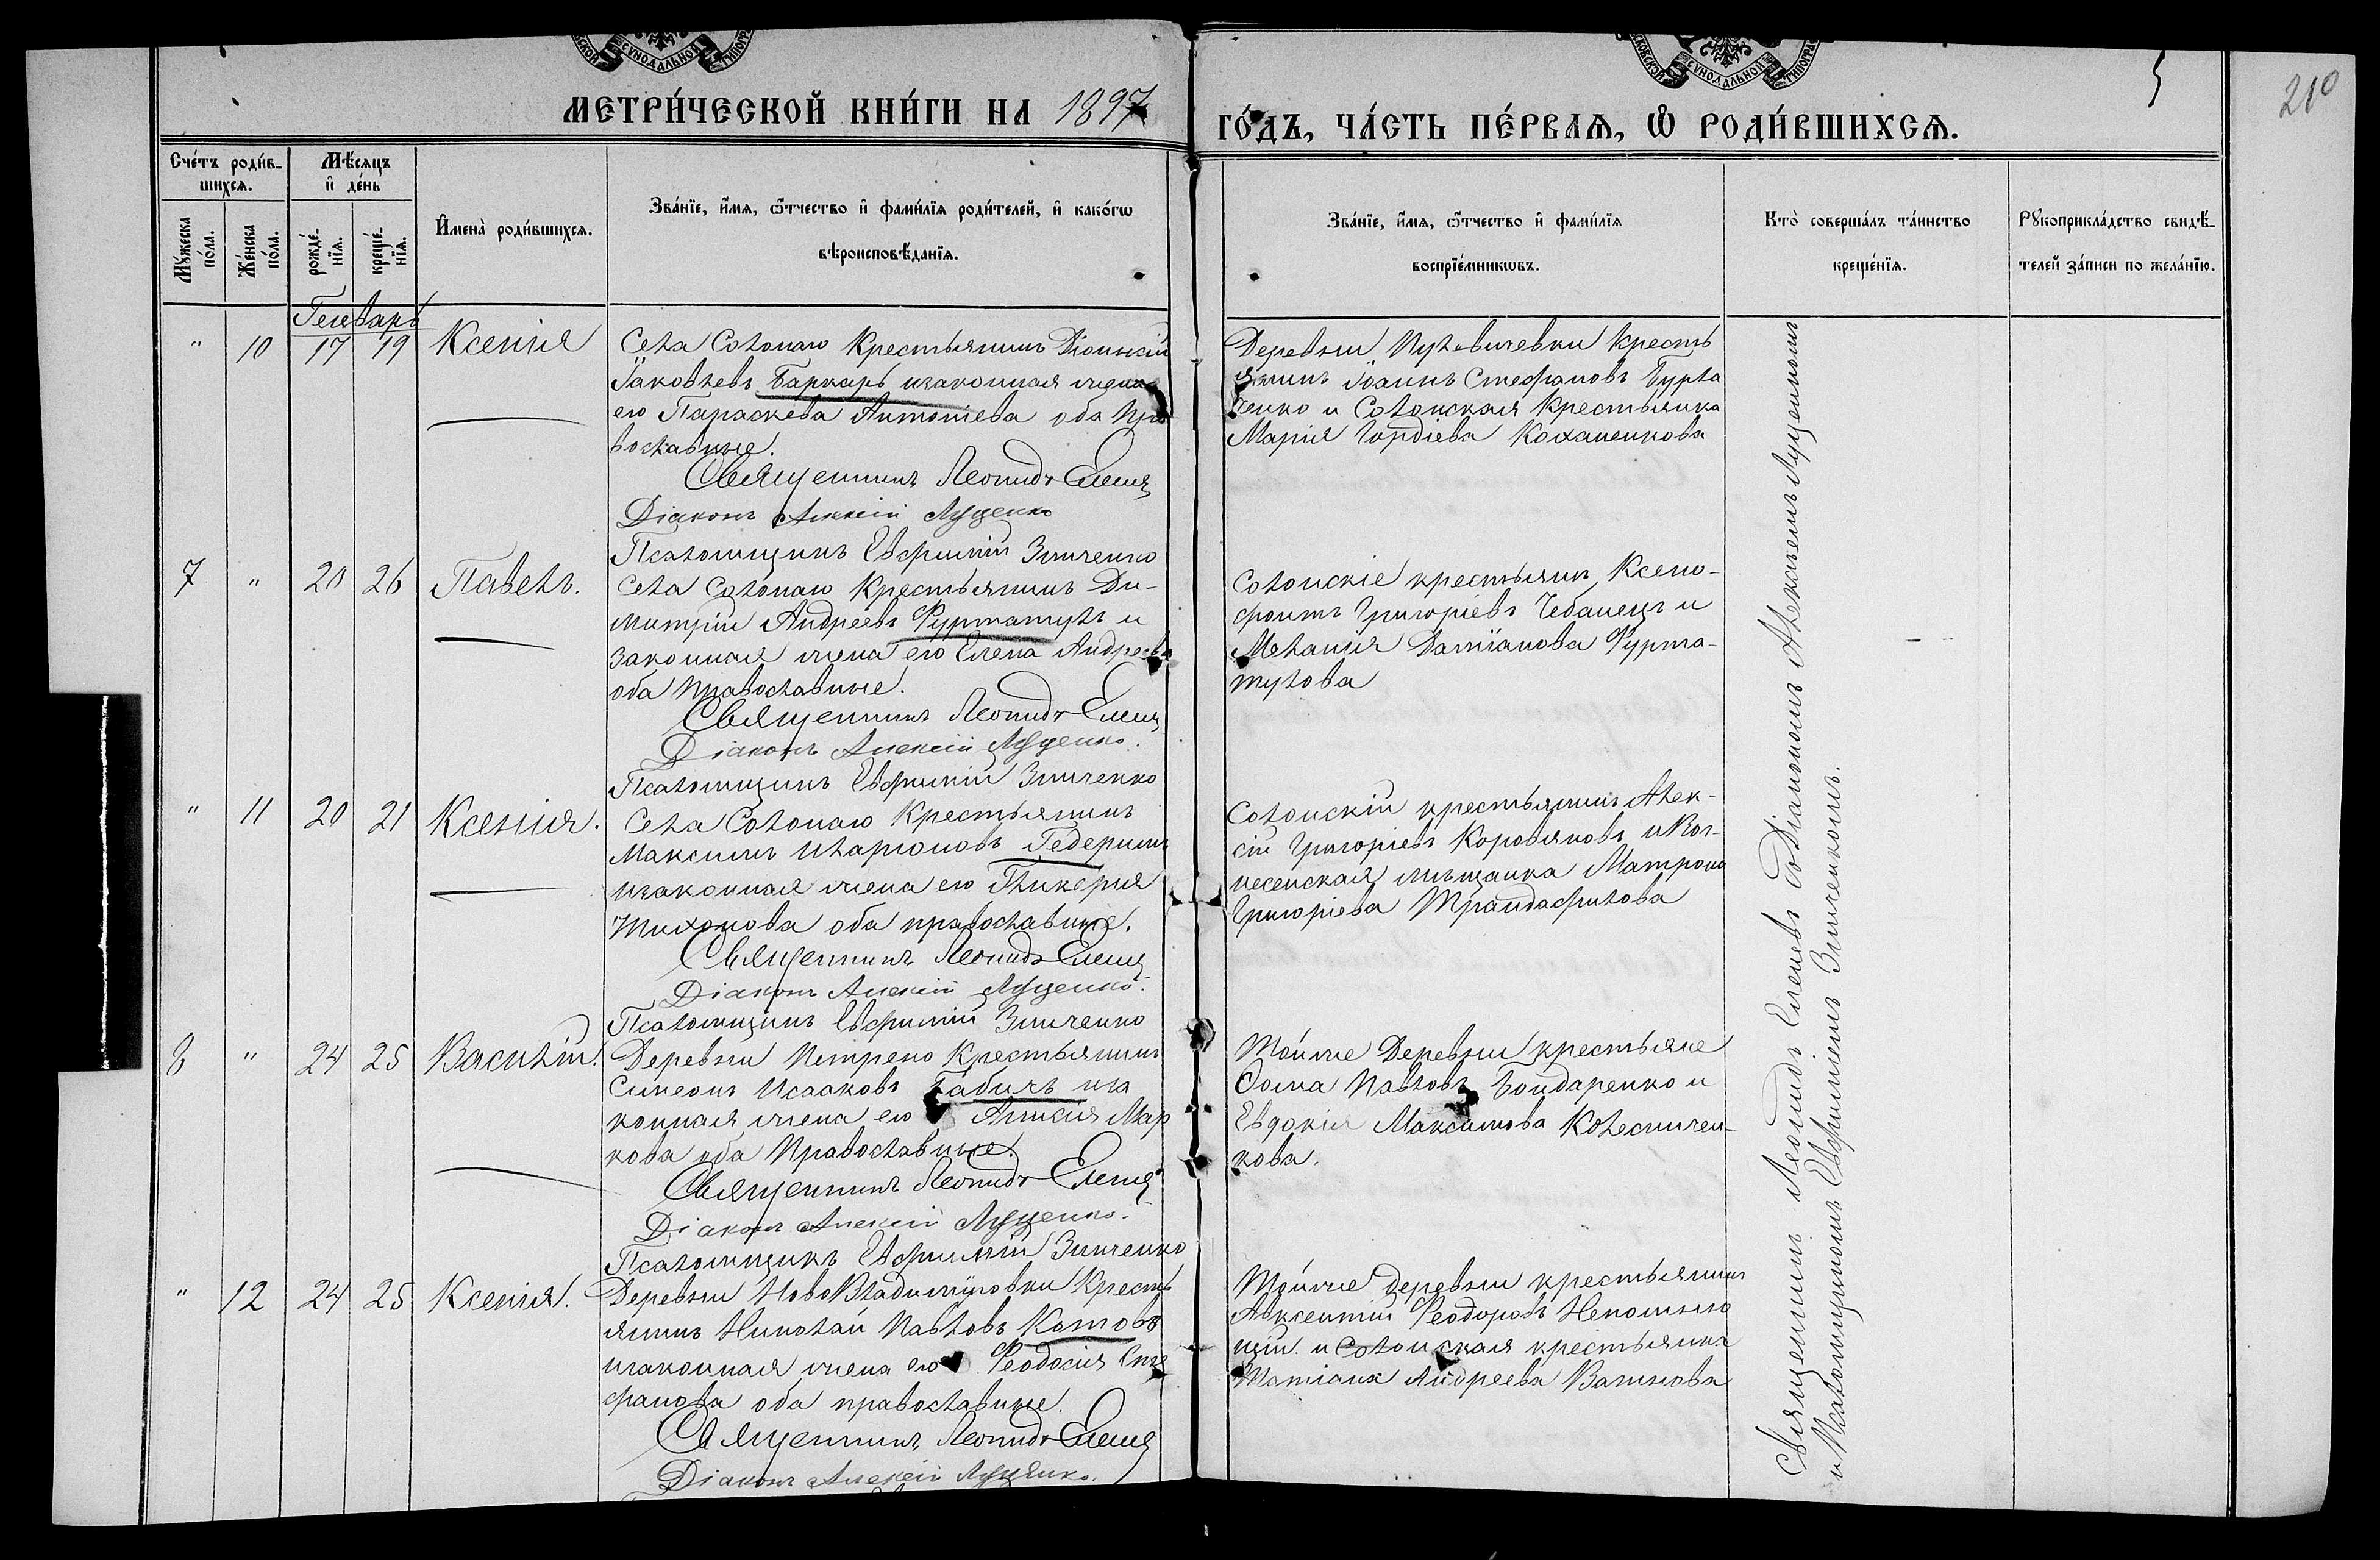 МЕТРИ́ЧЕСКОЙ КНИ́ГИ НА 1897
ГО́ДЪ, ЧА́СТЬ ПЕ́РВАѦ, Ѽ РОДИ́ВШИХСѦ.
5
210
Сче́тъ роди́в-
шихсѧ.
Мѣ́сѧцъ
и҆ де́нь
Мꙋ́жеска
по́ла.
Же́нска
по́ла.
рожде́-
нїѧ.
креще́-
нїѧ.
И҆мена̀ роди́вшихсѧ.
Зва́нїе, и҆́мѧ, ѻ҆́тчество и҆ фами́лїѧ роди́телей, и҆ како́гѡ
вѣроисповѣ́данїѧ.
Зва́нїе, и҆́мѧ, ѻ҆́тчество и҆ фами́лїѧ
воспрїе́мникѡвъ.
Кто̀ соверша́лъ та́инство
креще́нїѧ.
Рꙋкоприкла́дство свидѣ́-
телей за́писи по жела́нїю.
Генварь
" 10 17 19 Ксенія
Села Солонаго Крестьянинъ Діонисій
Іаковлевъ Баркарь изаконная жена
его Параскева Антоніева оба Пра
вославные.
Священникъ Леонидъ Еленевъ
Діаконъ Алексій Луценко
Псаломщикъ Евфимій Зинченко
Деревни Пужовичевки Кресть
янинъ Іоаннъ Стефановъ Бурла
ченко и Солонская Крестьянка
Марія Гордіева Коханенкова
7 " 20 26 Павелъ.
Села Солонаго Крестьянинъ Ди-
митрій Андреевъ Фуртатулъ и
законная жена его Елена Андреева
оба Православные.
Священникъ Леонидъ Еленевъ
Діаконъ Алексій Луценко.
Псаломщикъ Евфимій Зинченко
Солонскіе крестьяни Ксено-
фонтъ Григоріевъ Чебанецъ и
Меланія Даміанова Фурта-
тулова
" 11 20 21 Ксенія.
Села Солонаго Крестьянинъ
Максимъ Иларіоновъ Гедеримъ
изаконная жена его Гликерия
Тихонова оба православные.
Священникъ Леонидъ Еленевъ
Діаконъ Алексій Луценко.
Псаломщикъ Евфимій Зинченко
Солонскій крестьянинъ Алек-
сій Григоріевъ Коровяковъ и Воз-
несенская мѣщанка Матрона
Григоріева Трандафилова
8 " 24 25 Василій.
Деревни Петрено Крестьянинъ
Симеонъ Исааковъ Бабичъ иза
конная жена его Анисія Мар
кова оба Православные.
Священникъ Леонидъ Еленевъ
Діаконъ Алексій Луценко.
Псаломщикъ Евфимій Зинченко
Тойже Деревни крестьяне
Ѳома Павловъ Бондаренко и
Евдокія Максимова Колесничен-
кова.
" 12 24 25 Ксенія.
Деревни НовоВладиміровки Кресть
янинъ Николай Павловъ Котовъ
изаконная жена его Феодосія Сте
фанова оба православные.
Священникъ Леонидъ Еленевъ
Діаконъ Алексій Луценко.
Тойже деревни крестьянинъ
Авксентій Феодоровъ Непомнюю
щій и Солонская крестьянка
Татіана Андреева Ватнова
Священникъ Леонидъ Еленевъ съ Діакономъ Алексѣемъ Луценкомъ
и Псаломщикомъ Евфиміемъ Зинченкомъ.